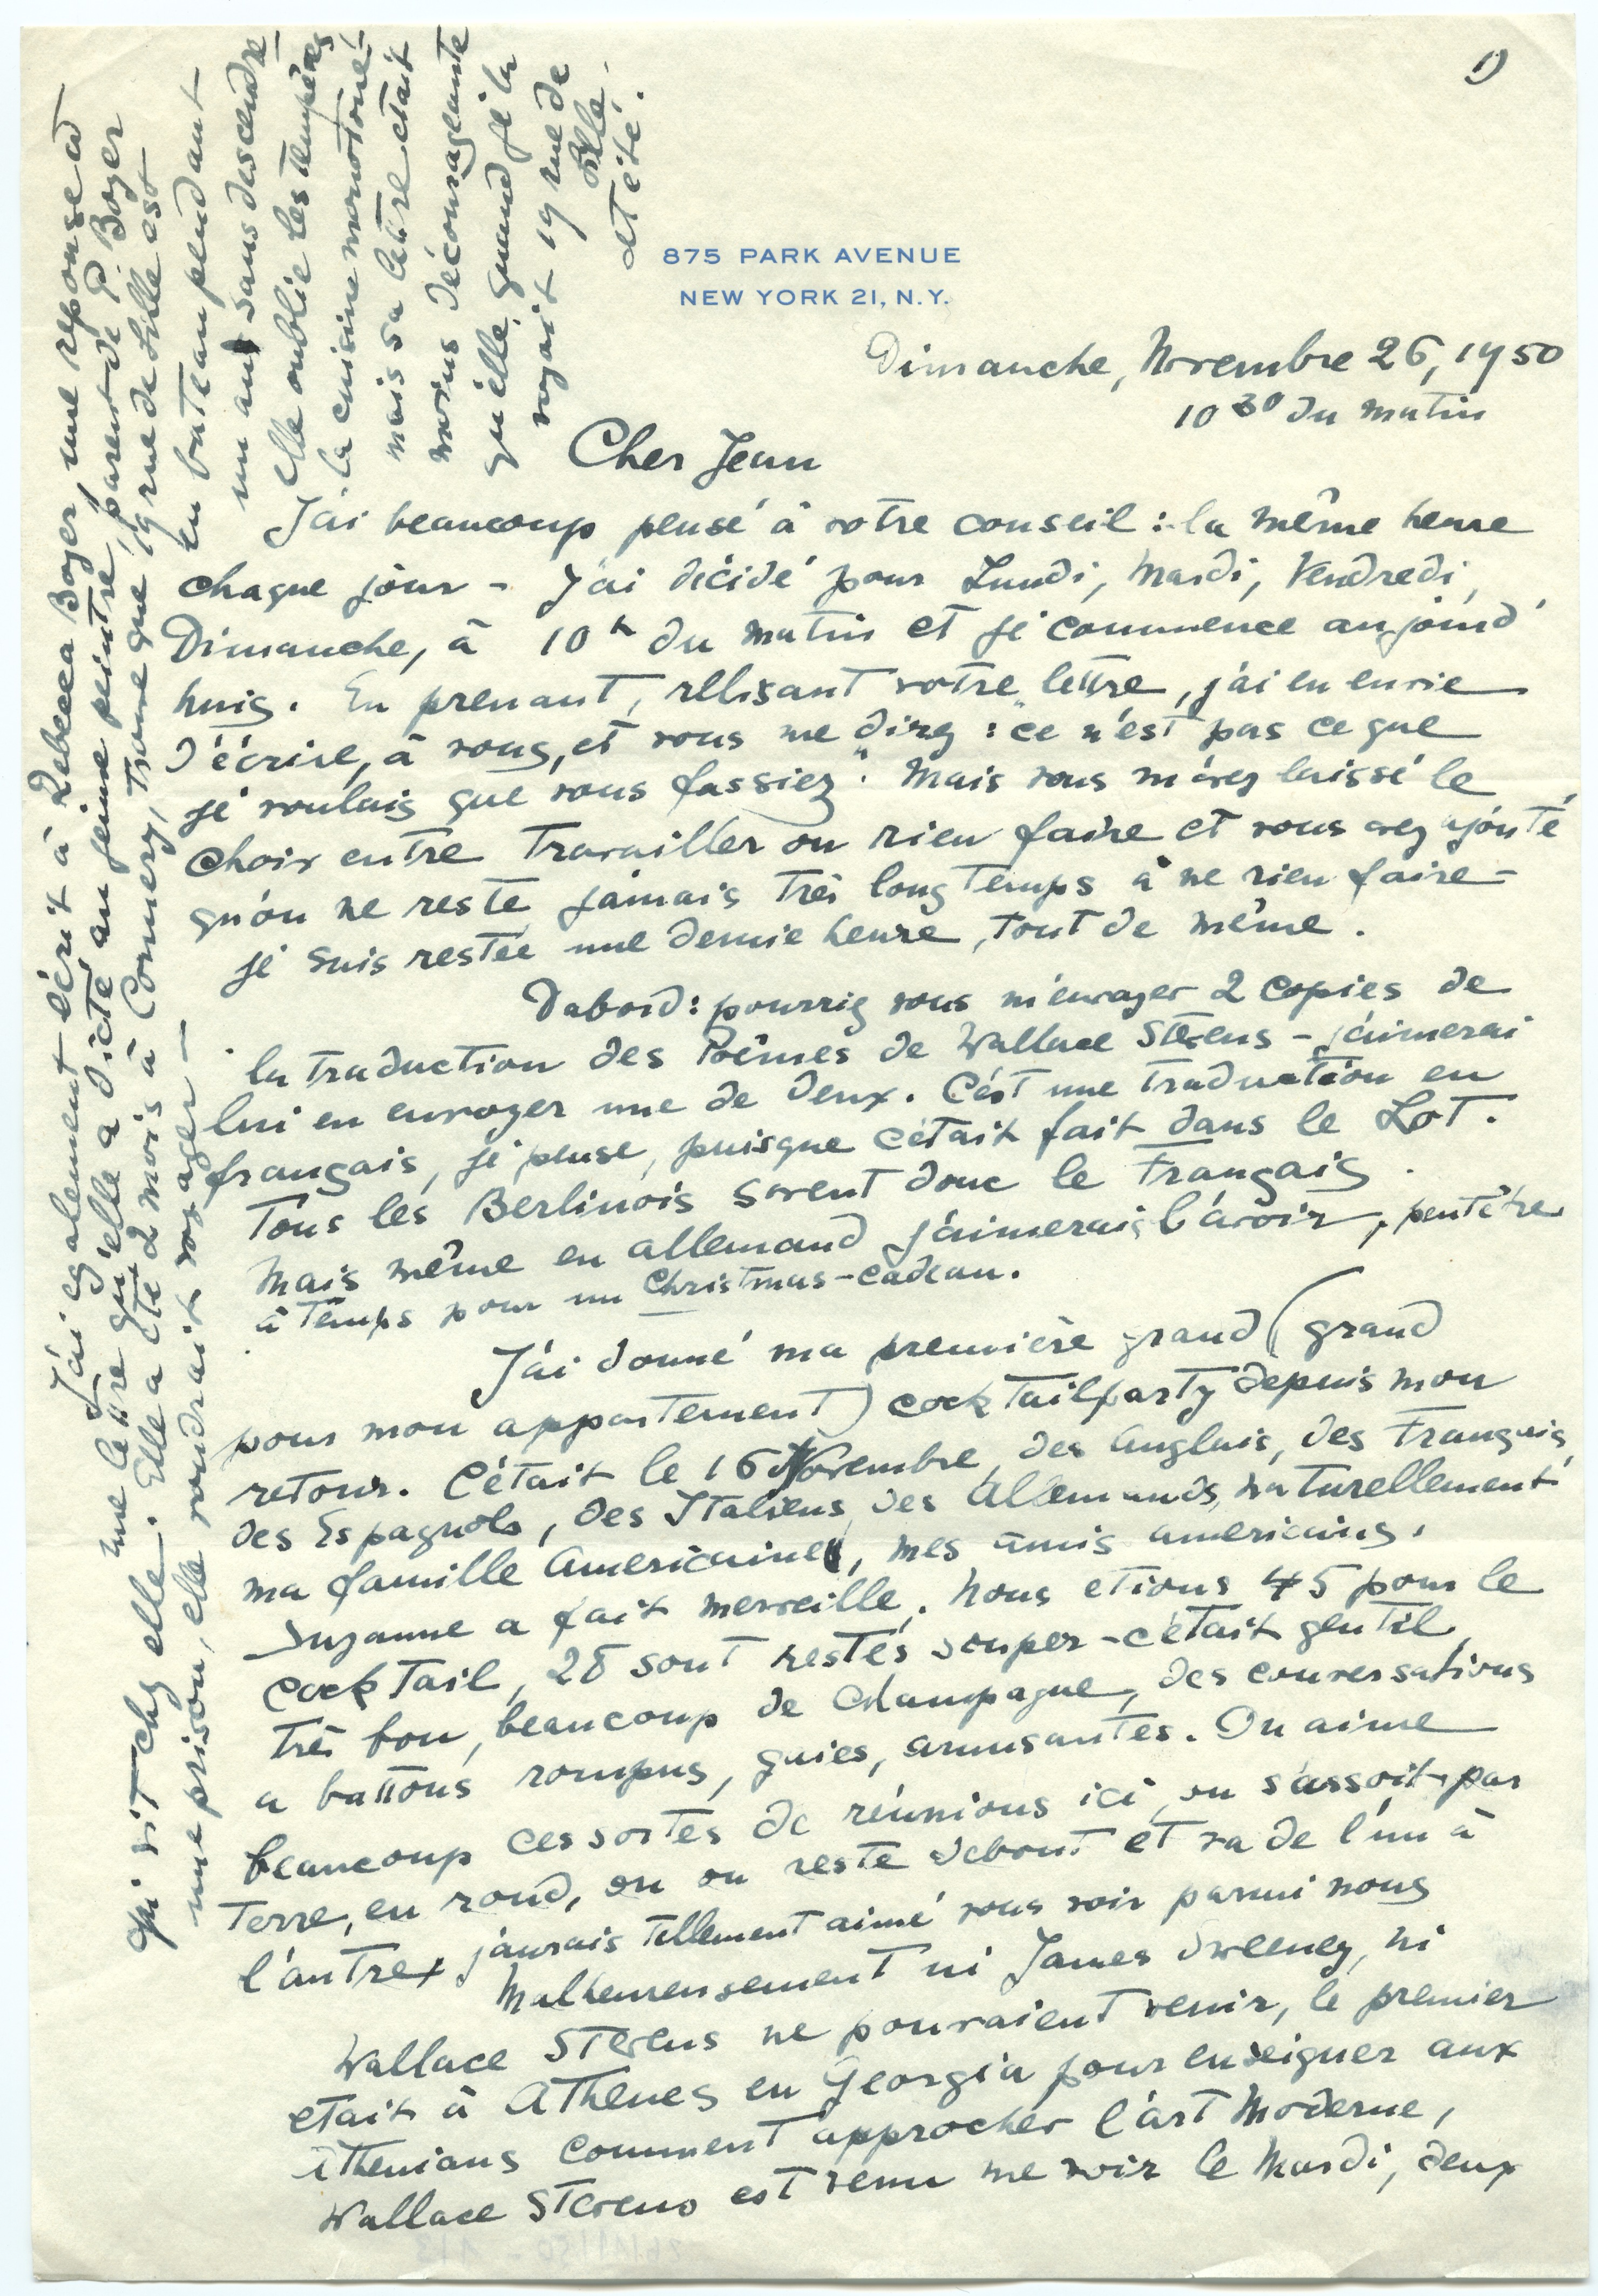 1)
875 PARK AVENUE
NEW YORK 21, N.Y.
Dimanche, Novembre 26, 1950
10 30 du matin
Cher Jean
J'ai beaucoup pensé à votre conseil : la même heure
chaque jour - J'ai décidé pour Lundi, Mardi, Vendredi,
Dimanche, à 10 h du matin et je commence aujourd'
huig. En prenant, relisant votre lettre, j'ai eu envie
d'écrire, à vous, et vous me direz : "ce n'est pas ce que
je voulais que vous fassiez". Mais vous m'avez laissé le
choix entre travailler ou rien faire et vous avez ajouté
qu'on ne reste jamais très longtemps à ne rien faire -
je suis restée une demie heure, tout de même.
Dabord : pourriez vous m'envoyer 2 copies de
la traduction des Poèmes de Wallace Stevens - j'aimerai
lui en envoyer une de deux. C'est une traduction en
français, je pense, puisque c'était fait dans le Lot.
Tous les Berlinois savent donc le Français.
Mais même en allemand j'aimerais l'avoir, peutêtre
à temps pour un Christmas-cadeau.
J'ai donné ma première grand (grand
pour mon appartement) cocktailparty depuis mon
retour. C'était le 16 Novembre, des Anglais, des Français,
des Espagnols, des Italiens, des Allemands, naturellement
ma famille Americaine, mes amis americains.
Suzanne a fait merveille. Nous etions 45 pour le
Cocktail, 28 sont restés souper - c'était gentil,
très bon, beaucoup de Champagne, des conversations
a battons rompus, gaies, amusantes. On aime
beaucoup ces sortes de réunions ici, on s'assoit par
terre, en rond, on on reste debout et va de l'un à
l'autre, j'aurais tellement aimé vous voir parmi nous
Malheureusement ni James Sweeney, ni
Wallace Stevens ne pouvaient venir, le premier
etait à Athenes en Georgia pour enseigner aux
Athenians comment approcher l'art Moderne,
Wallace Stevens est venu me voir le Mardi, deux
J'ai egalement écrit à Rebecca Boyer, une reponse à
une lettre qu'elle a dicté au jeune peintre, parent de Boyer
qui vit chez elle. Elle a été 2 mois à Cormery, trouve que 19 rue de Lille est
une prison, elle voudrait voyager -
en bateau pendant
un an sans descendre -
Elle oublie les tempêtes
la cuisine monotone -
mais sa lettre était
moins décourageante
qu'elle, quand je la
voyait 19 rue de
Lille
cet été.